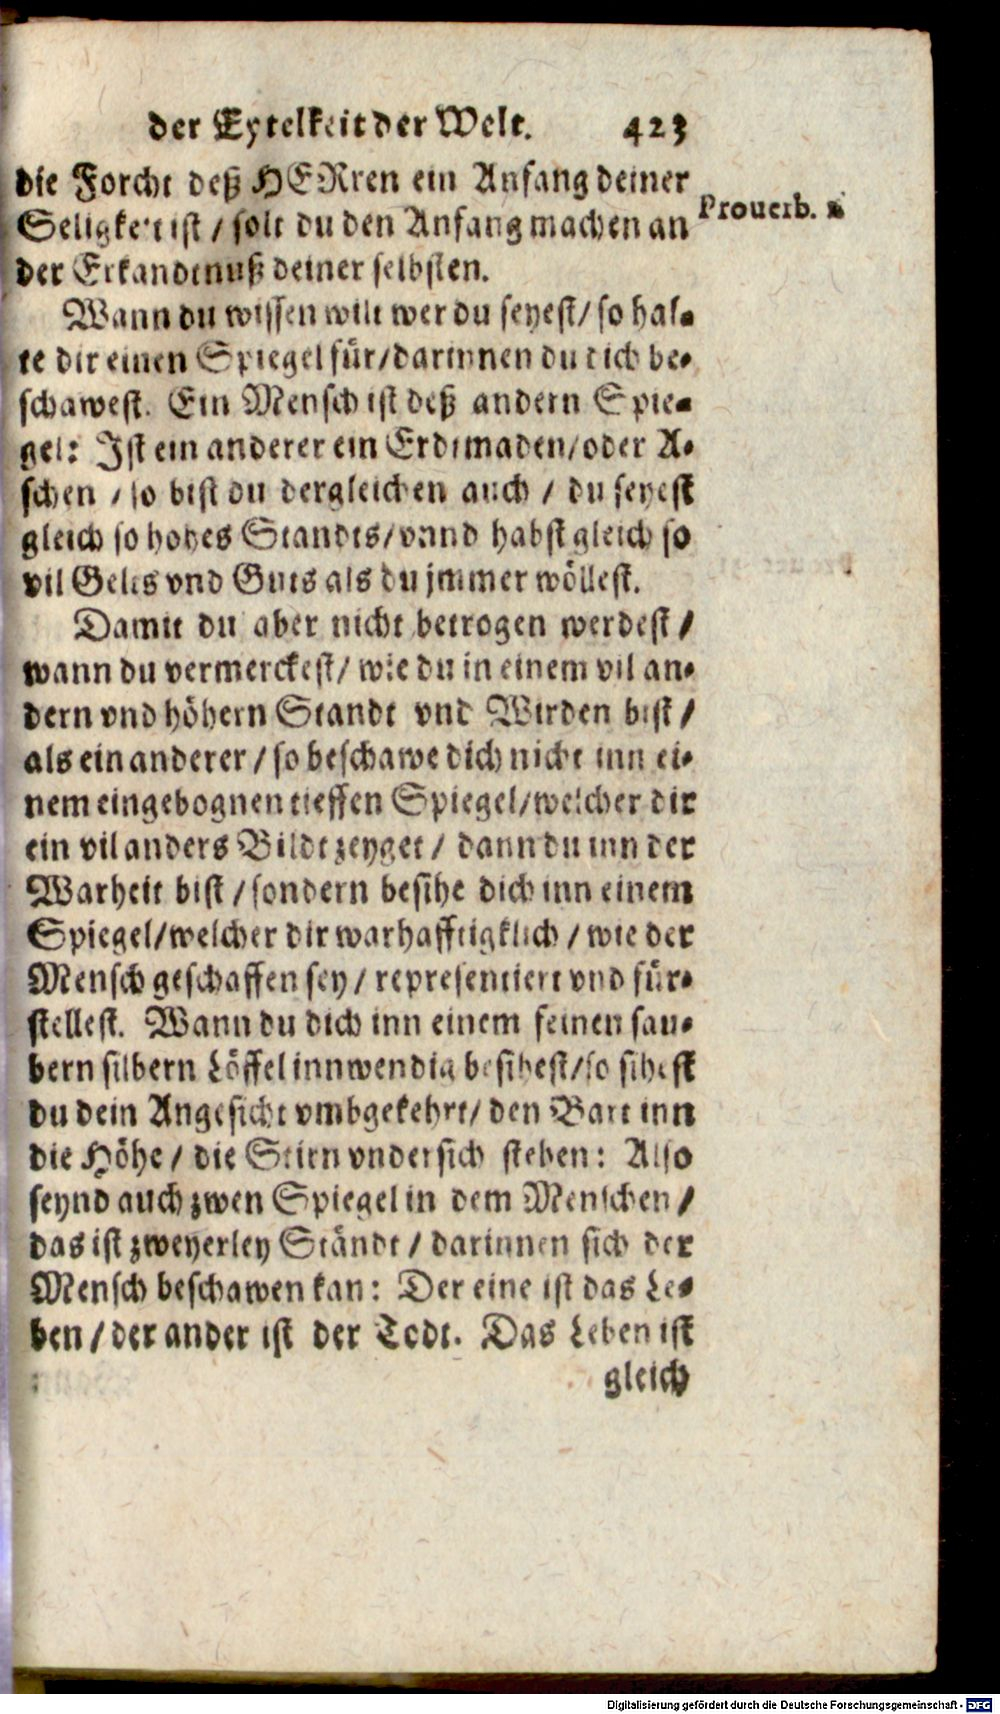 der Eytelkeit der Welt. 423
die Forcht deß HERren ein Anfang deiner
Seligkeit ist / solt du den Anfang machen an
Prouerb.
der Erkandtnuß deiner selbsten.
Wann du wissen wilt wer du seyest / so hal-
te dir einen Spiegel für / darinnen du dich be-
schawest. Ein Mensch ist deß andern Spie-
gel: Ist ein anderer ein Erdtmaden / oder A-
schen / so bist du dergleichen auch / du seyest
gleich so hohes Standts / vnnd habst gleich so
vil Gelts vnd Guts als du jmmer wöllest.
Damit du aber nicht betrogen werdest /
wann du vermerckest / wie du in einem vil an-
dern vnd höhern Standt vnd Wirden bist /
als ein anderer / so beschawe dich nicht inn ei-
nem eingebognen tieffen Spiegel / welcher dir
ein vil anders Bildt zeyget / dann du inn der
Warheit bist / sondern besihe dich inn einem
Spiegel / welcher dir warhafftigklich / wie der
Mensch geschaffen sey / representiert vnd für-
stellest. Wann du dich inn einem feinen sau-
bern silbern Löffel innwendig besihest / so sihest
du dein Angesicht vmbgekehrt / den Bart inn
die Höhe / die Stirn vndersich stehen: Also
seynd auch zwen Spiegel in dem Menschen /
das ist zweyerley Ständt / darinnen sich der
Mensch beschawen kan: Der eine ist das Le-
ben / der ander ist der Todt. Das Leben ist
gleich
Digitalisierung gefördert durch die Deutsche Forschungsgemeinschaft - DFG